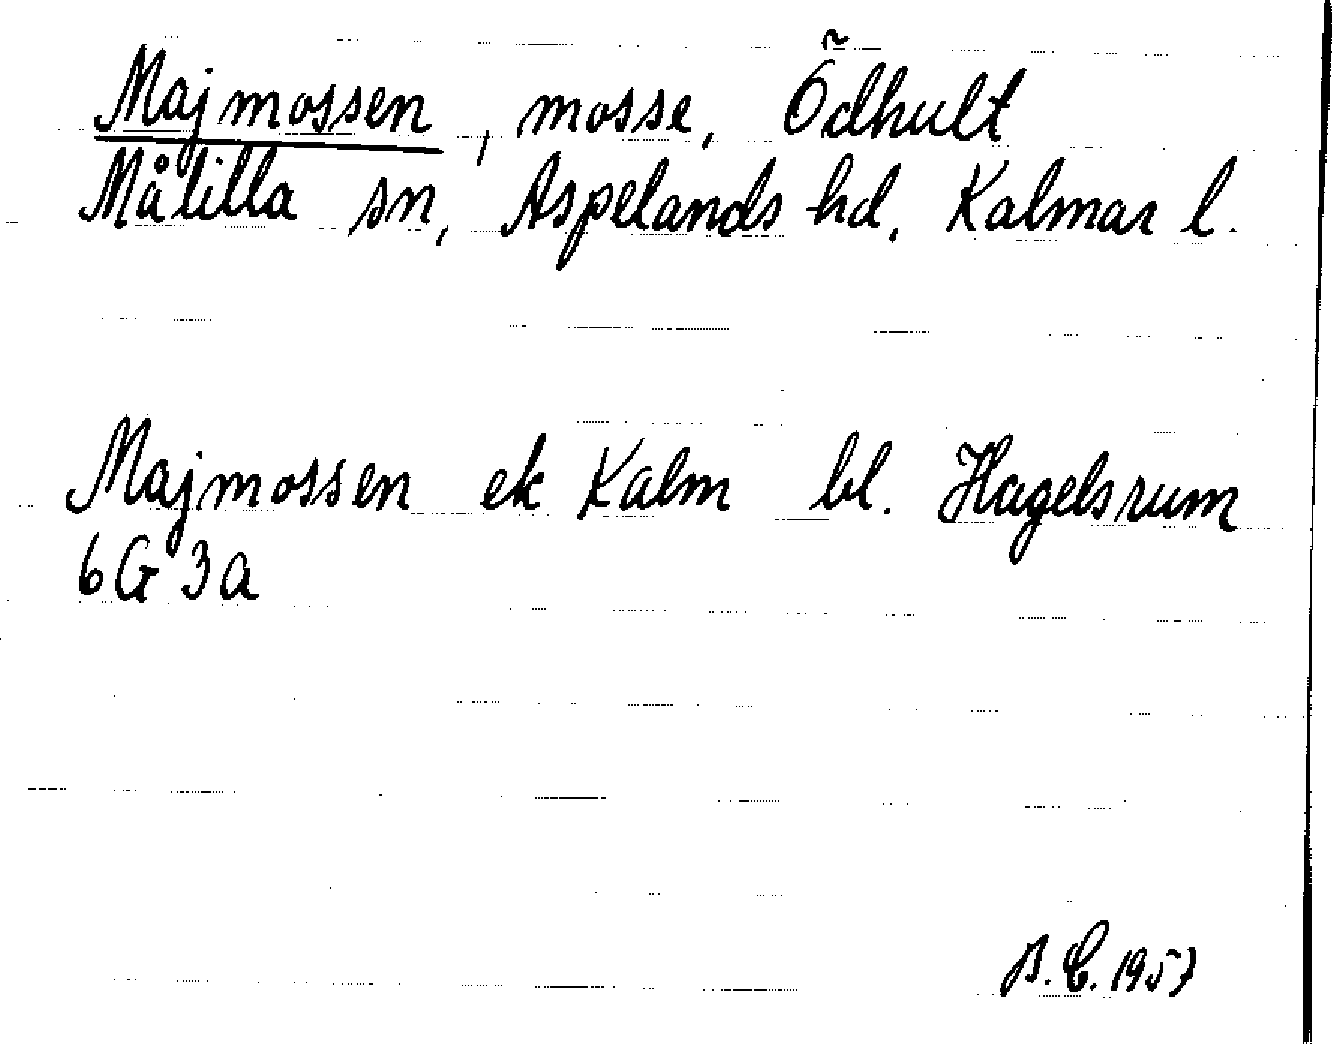 Majmossen, mosse, Ödhult
Målilla sn, Aspelands hd, Kalmar l.
Majmossen ek Kalm bl. Hagelsrum
6G 3a
B.E. 1957